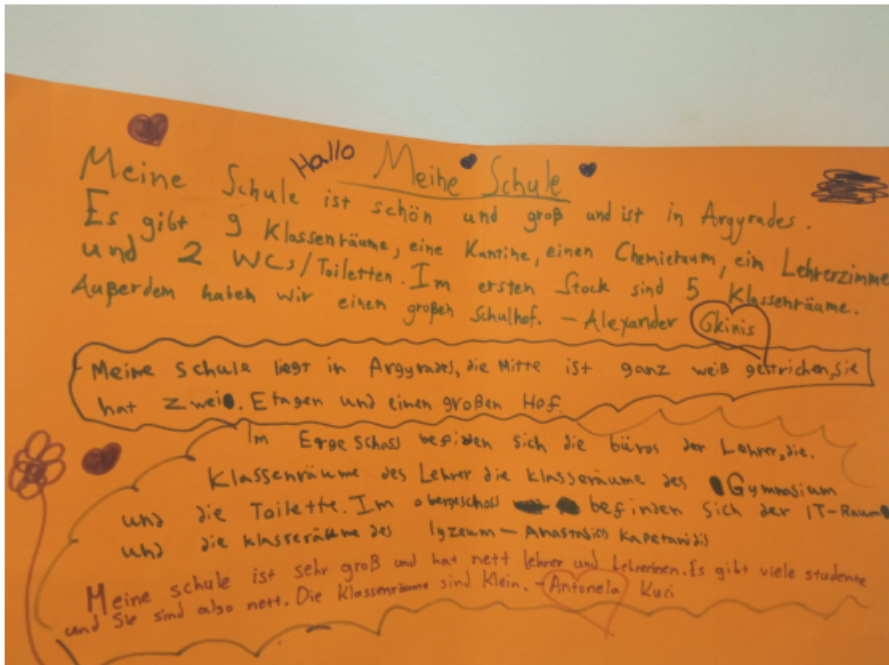 Hallo
Meine Schule
Meine Schule ist schön und groß und ist in Argyrades.
Es gibt 9 Klassenräume, eine Kantine, einen Chemieraum, ein Lehrerzimme
und 2 WCs/Toiletten. Im ersten Stock sind 5 Klassenräume.
Außerdem haben wir einen großen Schulhof. - Alexander Gkinis
Meine schule liegt in Argyrades, die Mitte ist ganz weiß gestrichen, sie
hat zwei Etagen und einen großen Hof.
Im Ergeschoss befinden sich die büros der Lehrer, die.
Klassenräume des Lehrer die klasseräume des Gymnasium
und die Toilette. Im obergeschoss befinden sich der IT-Raum
und die klasseräume des lyzeum - Kapetanidis
Meine schule ist sehr groß und hat nett lehrer und Lehrerinen. Es gibt viele studente
und Sie sind also nett. Die Klassenräume sind klein. - Antonela Kuci